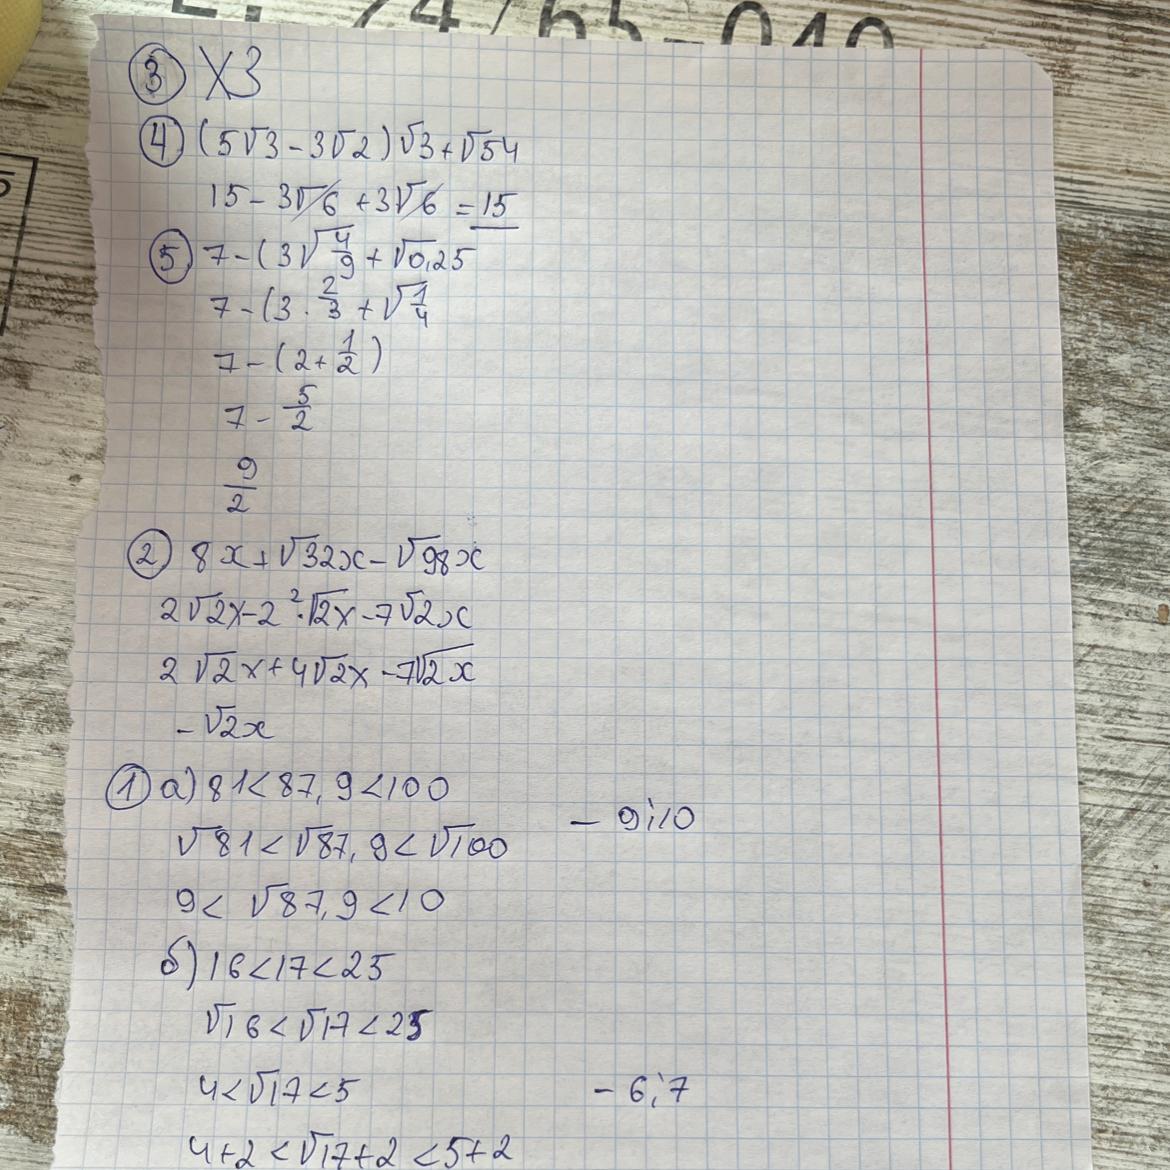 ③ X3
④ (5√3-3√2)√3+√54
15-3√6+3√6=15
⑤ 7-(3√4/9+√0,25
7-(3·2/3+√1/4
7-(2+1/2)
7-5/2
9/2
② 8x+√32x-√98x
2√2x-2²·√2x-7√2x
2√2x+4√2x-7√2x
-√2x
① а) 81<87,9<100
- 9;10
√81<√87,9<√100
9<√87,9<10
б) 16<17<25
√16<√17<25
4<√17<5
- 6;7
4+2<√17+2<5+2